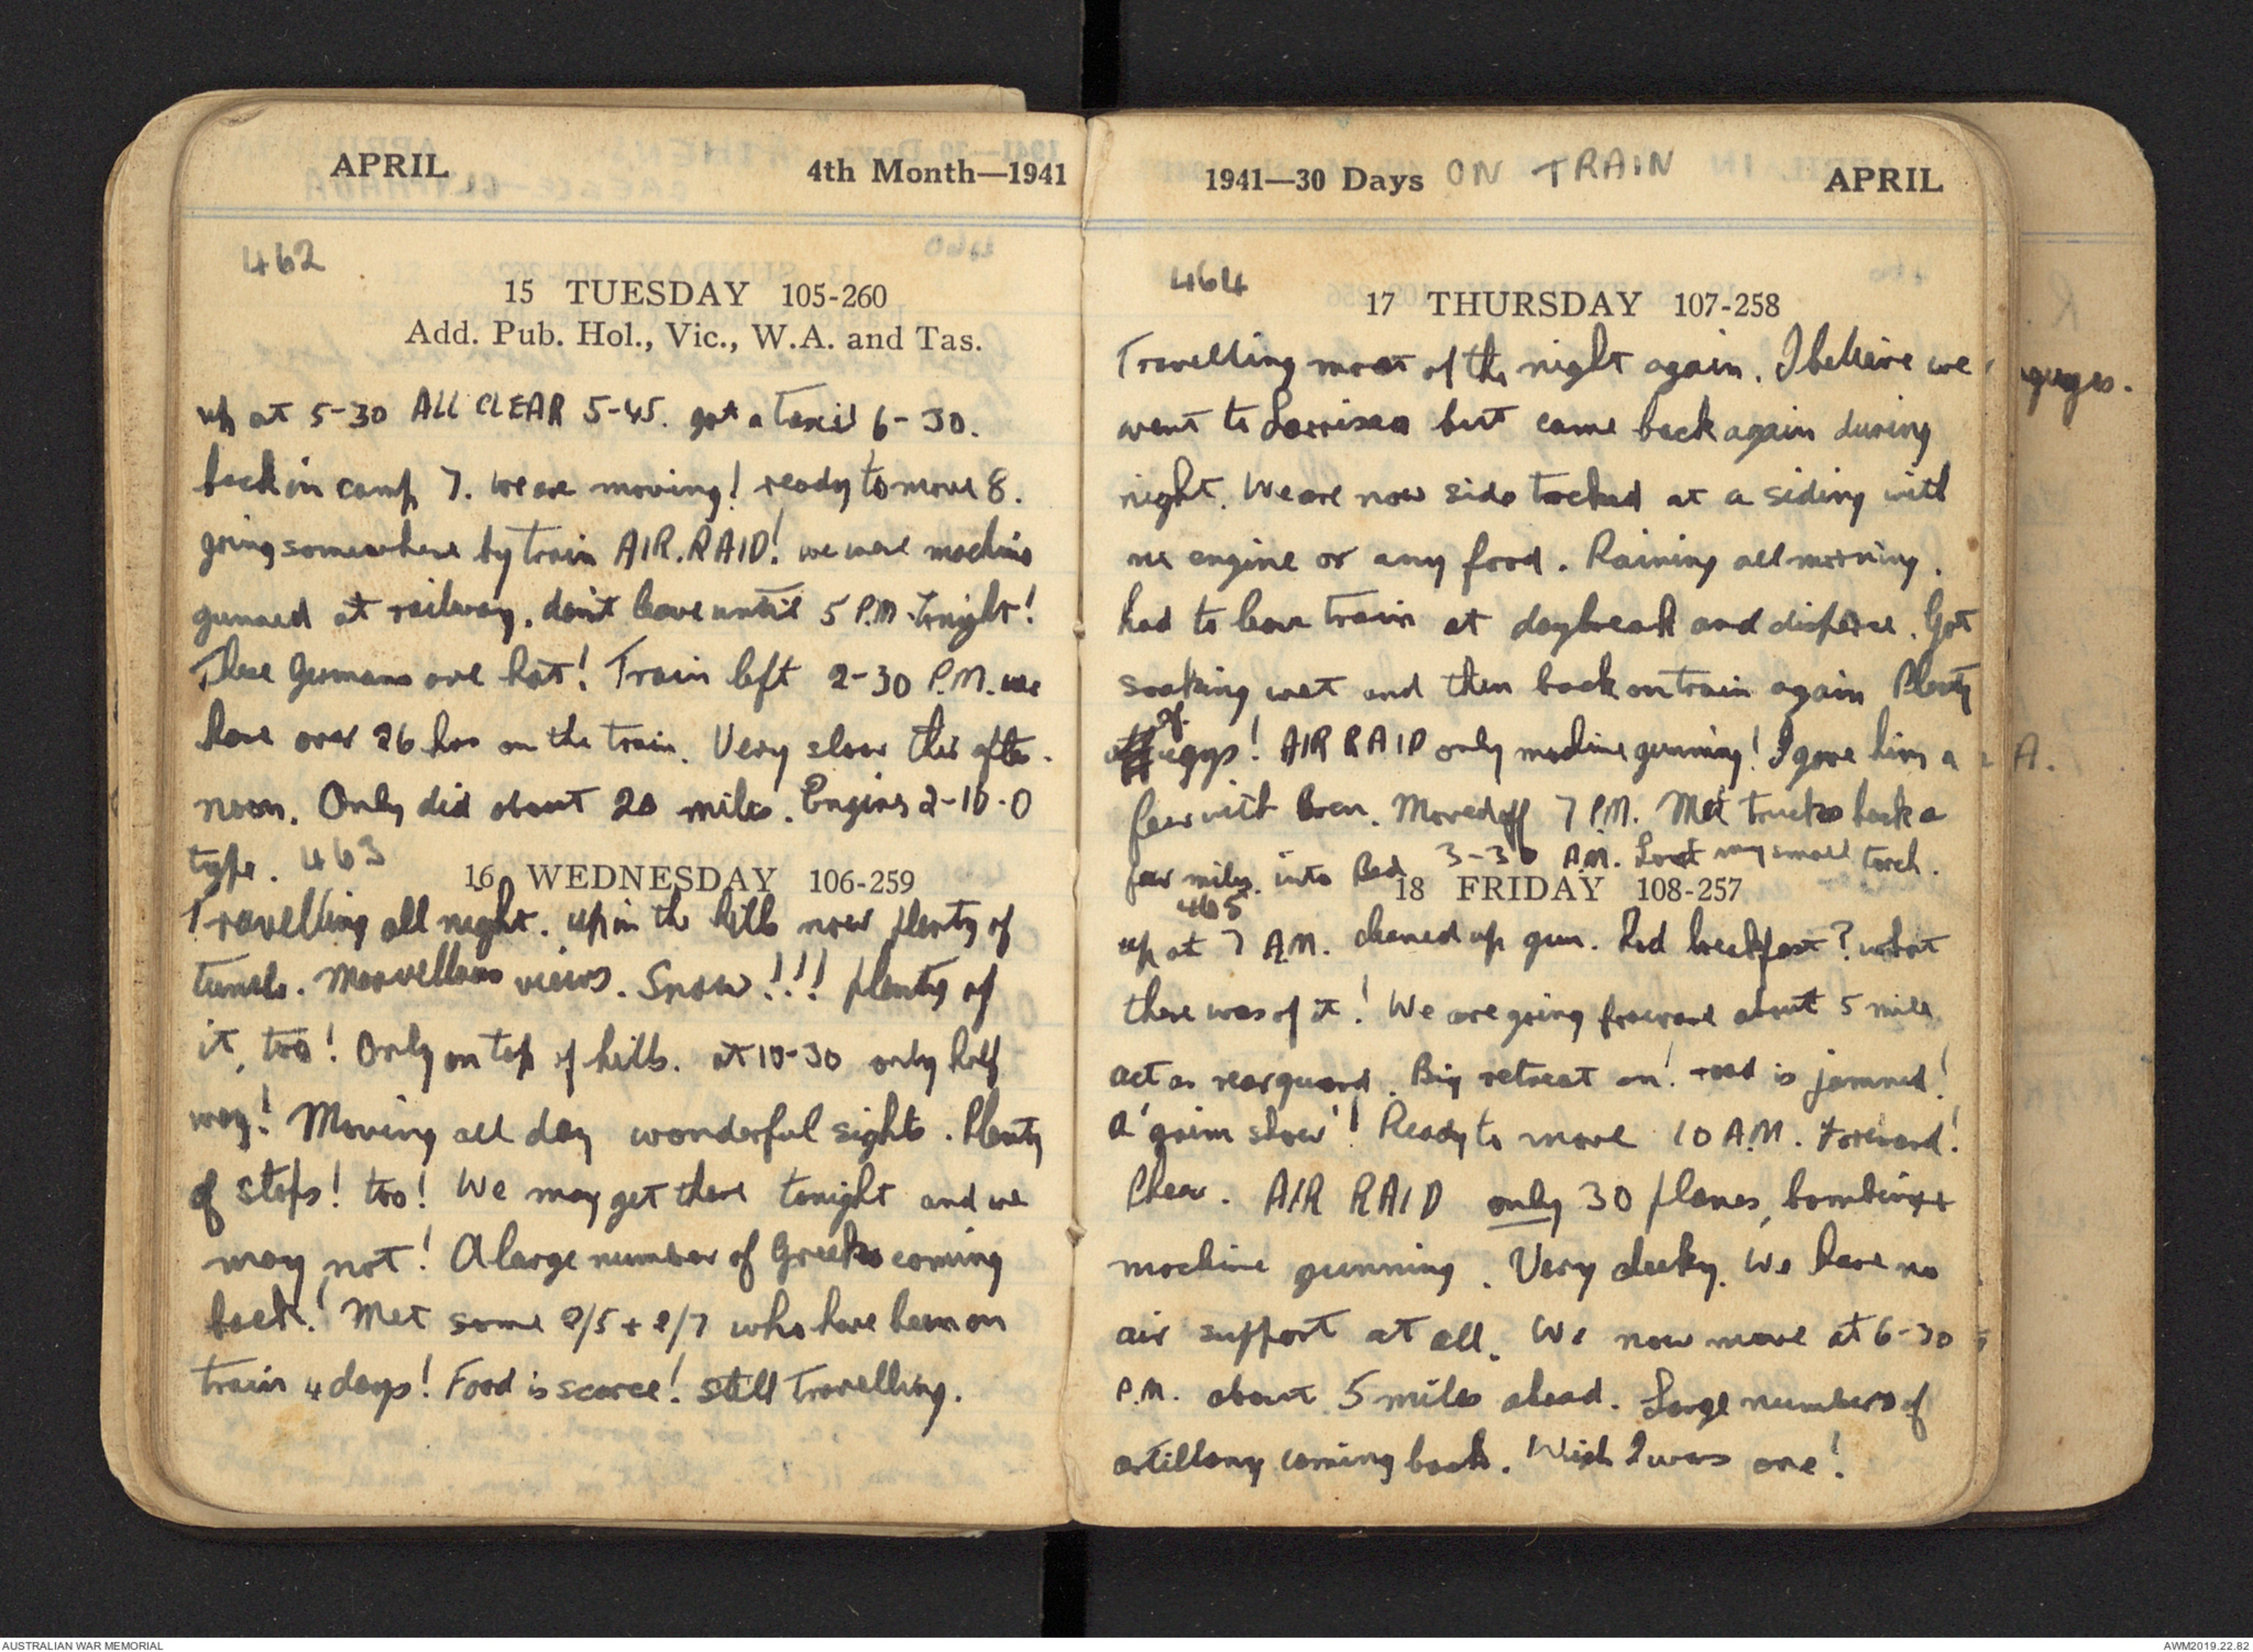 APRIL 4th Month—1941
462
15 TUESDAY 105-260
Add. Pub. Hol., Vic., W.A. and Tas.
up at 5-30 ALL CLEAR 5-45. got a taxi 6-30.
back in camp 7. We are moving! ready to move 8.
going somewhere by train AIR.RAID! we were machine
gunned at railway. don't leave until 5 P.M tonight!
These Germans are hot! Train left 2-30 P.M. we
have over 26 hrs on the train. Very slow this after-
noon. Only did about 20 miles. Engines 2-10-0
type. 463
16 WEDNESDAY 106-259
Travelling all night. up in the hills now plenty of
tunnels. Marvellous views. Snow!!! plenty of
it, too! Only on top of hills. at 10-30 only half
way! Moving all day wonderful sights. Plenty
of stops! too! We may get there tonight and we
may not! A large number of Greeks coming
back! Met some 2/5 + 2/7 who have been on
train 4 days! Food is scarce! still travelling.
1941—30 Days ON TRAIN APRIL
464
17 THURSDAY 107-258
Travelling most of the night again. I believe we
went to Larrissa but came back again during
night. We are now side tracked at a siding with
no engine or any food. Raining all morning.
had to leave train at daybreak and disperse. Got
soaking wet and then back on train again Plenty
of eggs! AIR RAID only machine gunning! I gave him a
few with bren. Moved off 7 P.M. Met trucks back a
few miles. into Bed 3-30 A.M. Lost my small torch.
18 FRIDAY 108-257
465
up at 7 A.M. cleaned up gun. Had breakfast? what
there was of it! We are going forward about 5 mile
act as rearguard. Big retreat on! road is jammed!
A 'grim show'! Ready to move 10 A.M. Forward!
Phew. AIR RAID only 30 planes, bombing +
machine gunning. Very cheeky. We have no
air support at all. We now move at 6-30
P.M. about 5 miles ahead. Large numbers of
artillary coming back. Wish I was one!
R
A.
AUSTRALIAN WAR MEMORIAL
AWM2019.22.82